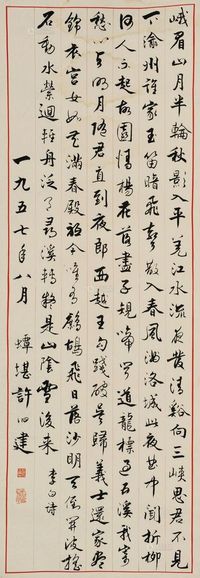 峨眉山月半輪秋影入平羌江水流夜發清谿向三峽思君不見
下渝州誰家玉笛暗飛聲散入春風滿洛城此夜曲中聞折柳
何人不起故園情楊花落盡子規啼聞道龍標過五溪我寄
愁心與明月隨君直到夜郎西越王勾踐破吳歸義士還家盡
錦衣宮女如花滿春殿祇今唯有鷓鴣飛日落沙明天倒開波搖
石動水縈迴輕舟泛月尋溪轉疑是山陰雪後來 李白詩
一九五七年八月 蟫堪許伯建